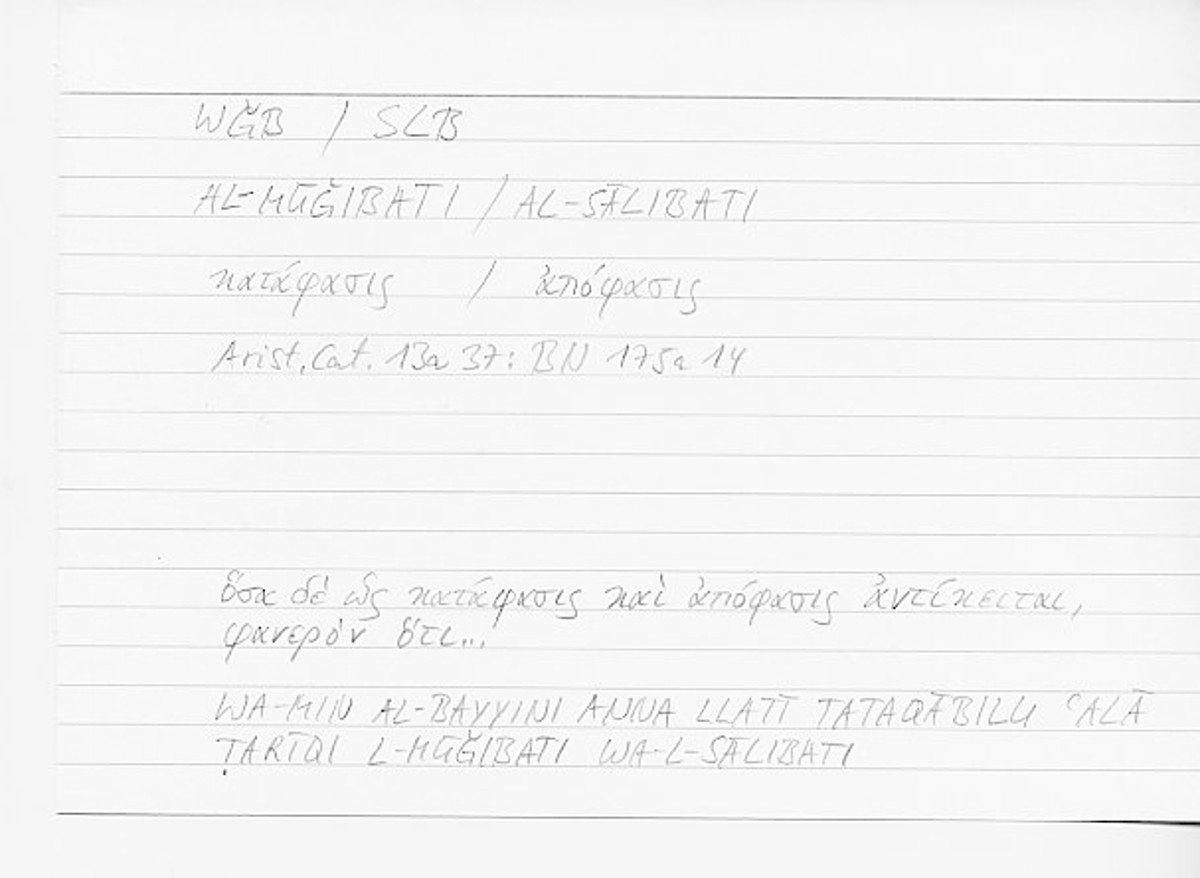 WǦB / SLB
AL-MŪǦIBATI / AL-SĀLIBATI
κατάφασις / ἀπόφασις
Arist, Cat. 13a 37: BN 175a 14
ὅσα δὲ ὡς κατάφασις καὶ ἀπόφασις ἀντίκειται,
φανερὸν ὅτι...
WA-MIN AL-BAYYINI ANNA LLATĪ TATAQĀBILU ʿALĀ
ṬARĪQI L-MŪǦIBATI WA-L-SĀLIBATI